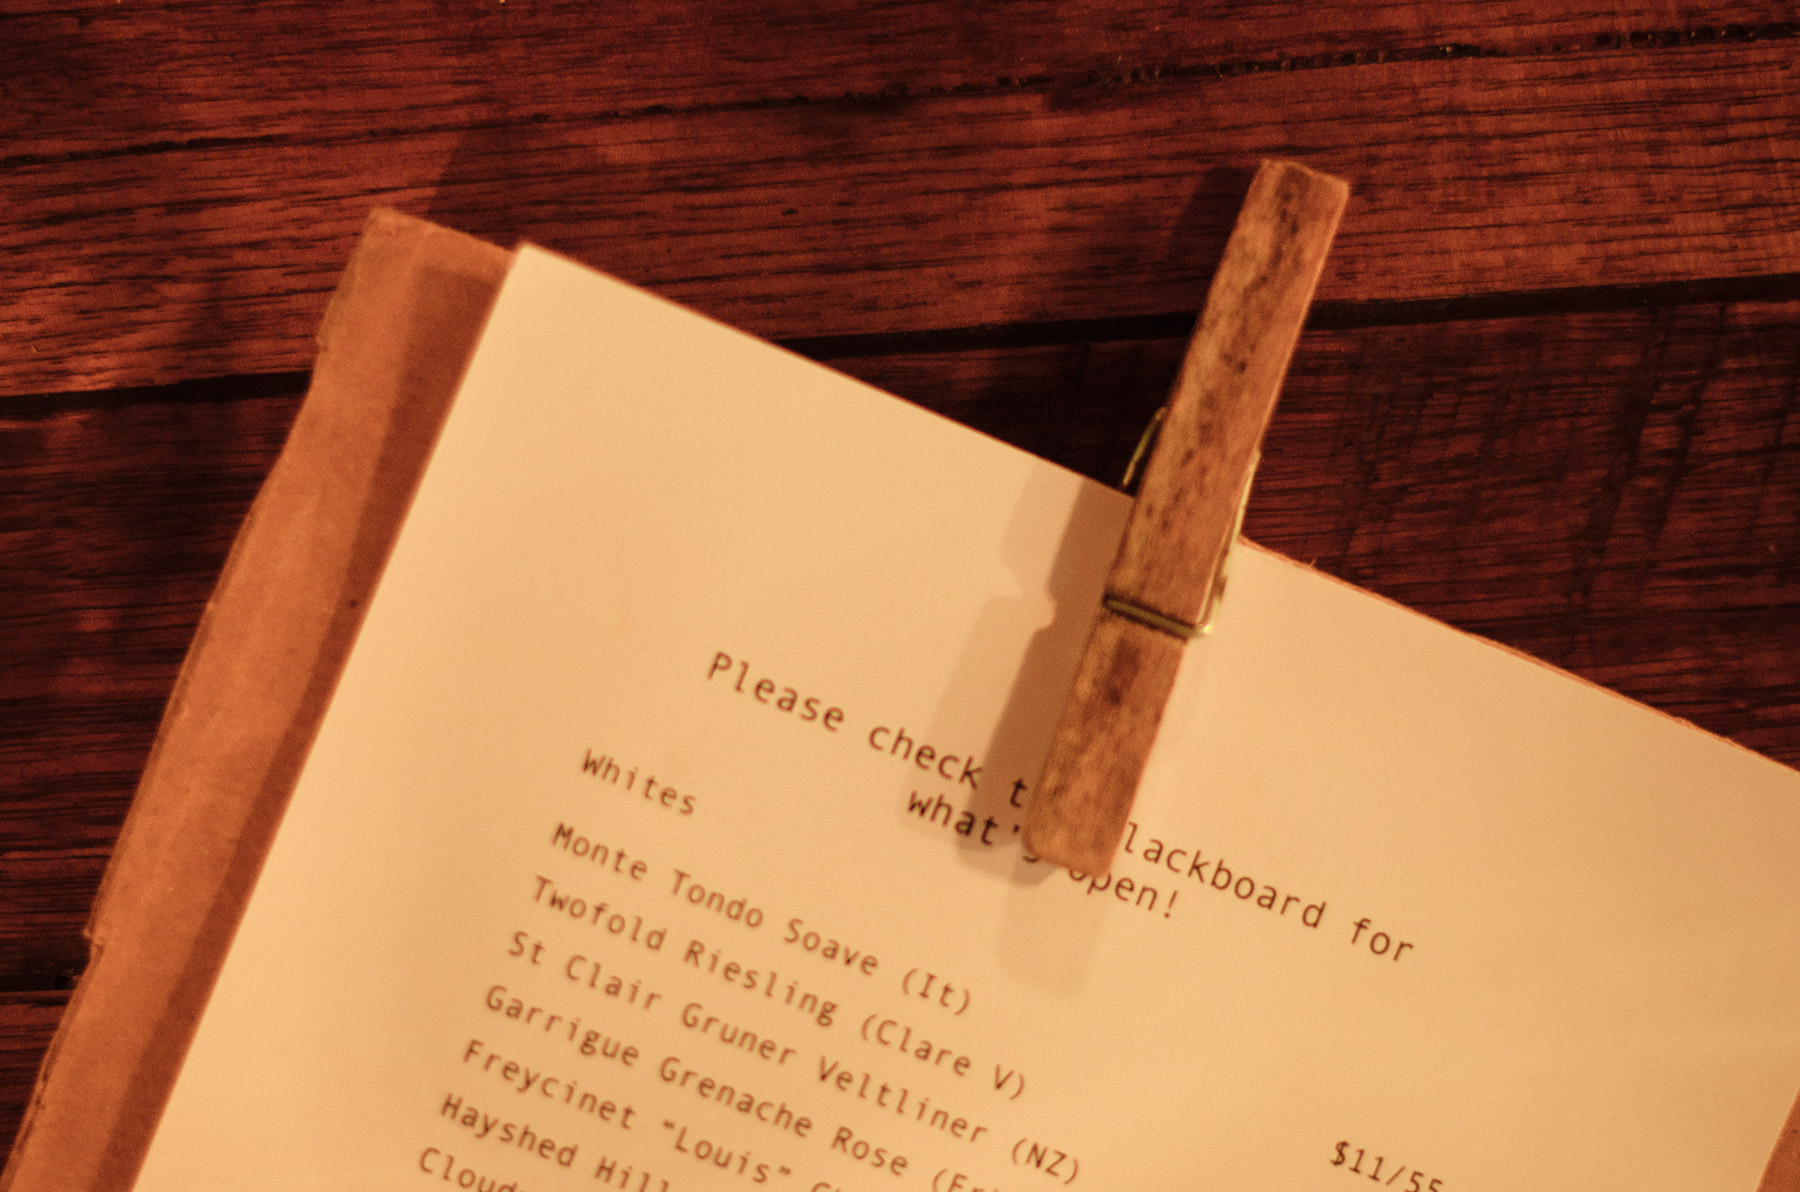 Please check t lackboard for
what's open!
Whites
Monte Tondo Soave (It)
Twofold Riesling (Clare V)
St Clair Gruner Veltliner (NZ)
$11/55
Garrigue Grenache Rose (Fr
Freycinet "Louis"
Hayshed Hill
Cloud